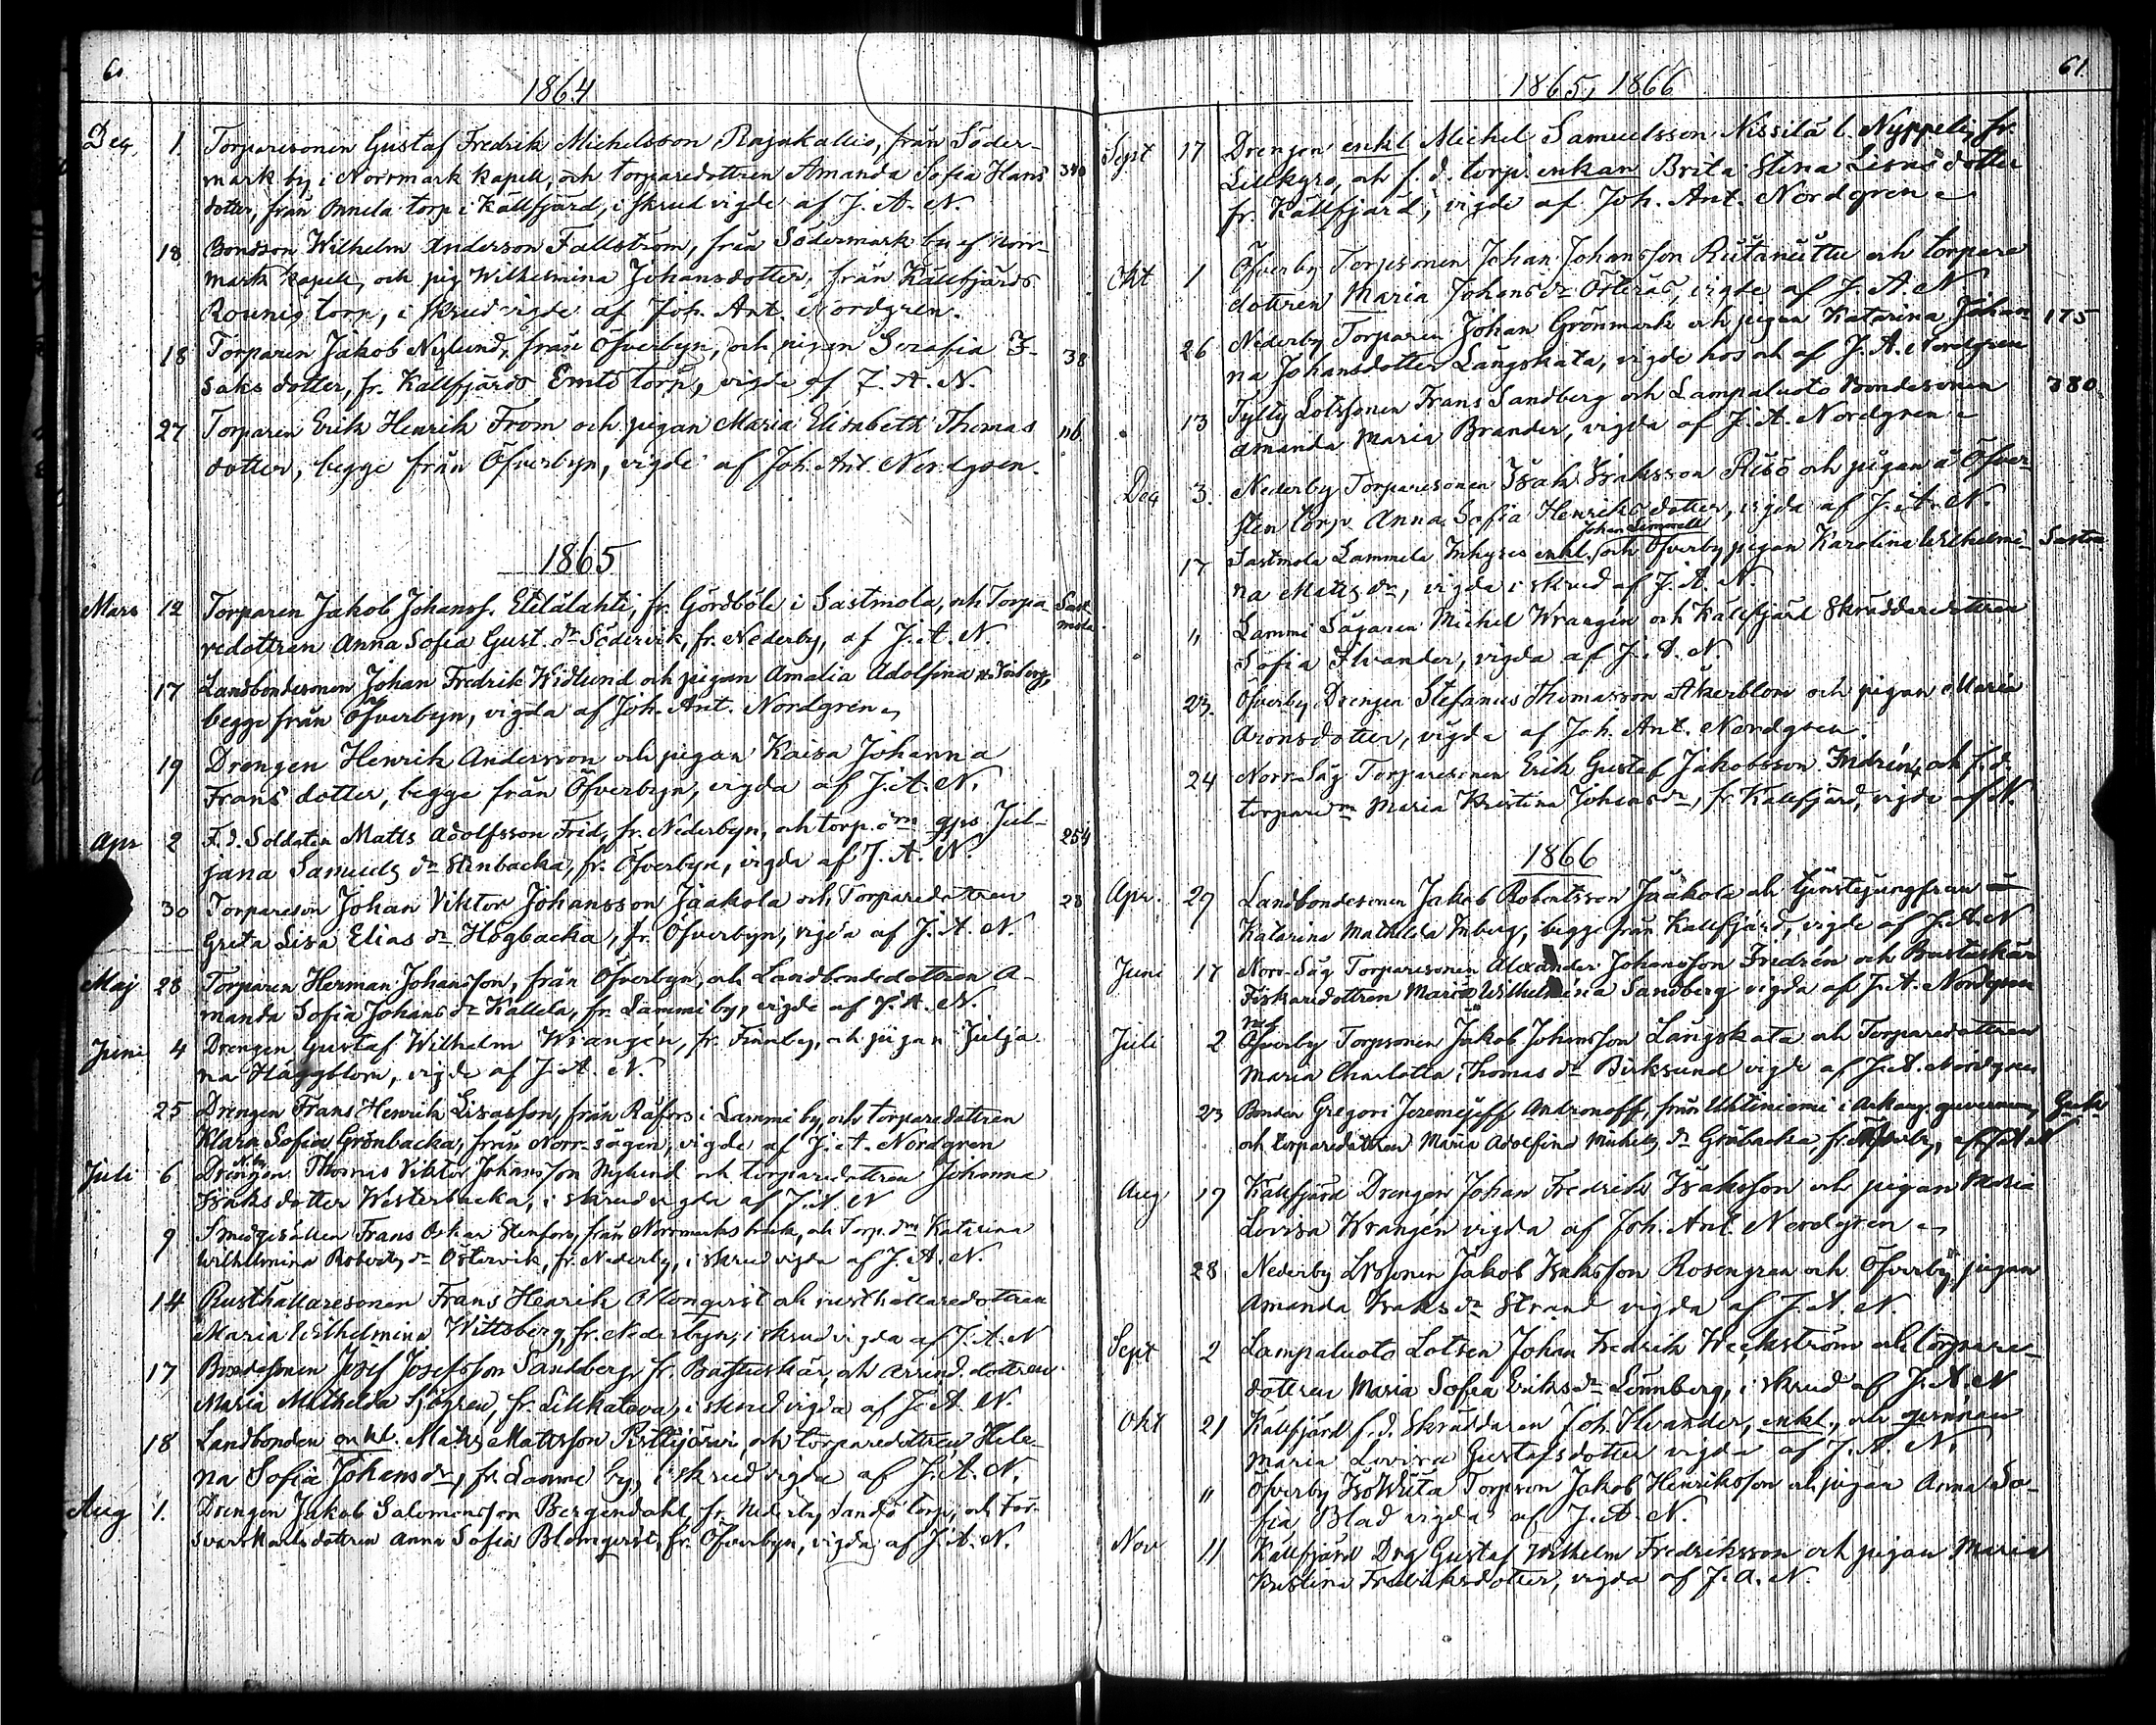 60
1864
Dec. 1. Torparesonen Gustaf Fredrik Michelsson Rajakallio, från Söder-
mark by i Norrmark kapell, och torparedottren Amanda Sofia Hans 340
dotter, från Annila torp i Källfjärd, i skrud vigde af J. A. N.
18 Bondson Wilhelm Anderson Fallström, från Södermark by af Norr-
mark kapell, och pig Wilhelmina Johansdotter, från Källfjärds
Rounis torp, i skrud vigde af Joh. Ant. Nordgren.
18 Torparen Jakob Nylund, från Öfverbyn, och pigan Serafia I- 38
saks dotter, fr. Källfjärds torp, vigde af J. A. N.
27 Torparen Erik Henrik From och pigan Maria Elisabeth Thomas 116
dotter, begge från Öfverbyn, vigde af Joh. Ant. Nordgren.
1865
Mars 12 Torparen Jakob Johanss. Etelälahti, fr. Gördböle i Sastmola, och Torpa Sast
redottren Anna Sofia Gust. dr Södervik, fr. Nederby, af J. A. N. mola
17 Landbondesonen Johan Fredrik Widlund och pigan Amalia Adolfina
begge från Öfverbyn, vigda af Joh. Ant. Nordgren
19 Drengen Henrik Andersson och pigan Kaisa Johanna
Frans dotter, begge från Öfverbyn, vigda af J. A. N.
Apr 2 F. d. Soldaten Matts Adolfsson Frid, fr. Nederbyn, och torp. Jul- 254
jana Samuels dr Stenbacka, fr. Öfverbyn, vigda af J. A. N.
30 Torpareson Johan Viktor Johansson Jaakola och Torparedottren 28
Greta Lisa Elias dr Högbacka, fr. Öfverbyn, vigda af J. A. N.
Maj 28 Torparen Herman Johansson, från Öfverbyn, och Landbondedottren A-
manda Sofia Johans dr Kallela, fr. Lammi by, vigde af J. A. N.
Juni 4 Drengen Gustaf Wilhelm Wrangén, fr. Finnby, och pigan Julja
na Häggblom, vigde af J. A. N.
25 Drengen Frans Henrik Lisasson, från Råfors i Lammi by, och torparedottren
Klara Sofia Grönbacka, från Norr-sågen, vigde af J. A. Nordgren
Juli 6 Drengen Thomas Viktor Johansson Nylund och torparedottren Johanna
Isaks dotter Westerbacka, i skrud vigda af J. A. N
9 Smedgesällen Frans Oskar Stenfors, från Norrmarks bruk, och Torp. Katarina
Wilhelmina Roberts dr Östervik, fr. Nederby, i skrud vigda af J. A. N.
14 Rusthållaresonen Frans Henrik Blomqvist och rusthållaredottren
Maria Wilhelmina Wittsberg, fr. Nederbyn, i skrud vigda af J. A. N
17 Bondesonen Josef Josefsson Sandberg, fr. Bastuskär, och arrend. dottren
Maria Mathilda Sjögren, fr. Lillkatava, i skrud vigda af J. A. N.
18 Landbonden enkl. Matts Mattsson Pistijärvi, och torparedottren Hele-
na Sofia Johans dr, fr. Lammi by, i skrud vigda af J. A. N.
Aug 1. Drengen Jakob Salomonsson Bergendahl, fr. Nederby Sandö torp, och För-
svarskarls dottren Anna Sofia Blomqvist, fr. Öfverbyn, vigda af J. A. N.
61
1865, 1866
Sept 17 Drengen enkl Michel Samuelsson Nissilä l. Nyppeli, fr.
Lillkyro, och f. d. torp. enkan Brita Stina Lisas dotter
fr. Källfjärd, vigde af Joh. Ant. Nordgren
Okt 1 Öfverby Torpsonen Johan Johansson Rutanuttu och torpare
dottren Maria Johans dr Österås, vigde af J. A. N.
26 Nederby Torparen Johan Grönmark och pigan Katarina Johan 175
na Johansdotter Långskata, vigde hos och af J. A. Nordgren
13 Tyltty Lotssonen Frans Sandberg och Lampaluoto Bondesonen 380
Amanda Maria Brander, vigda af J. A. Nordgren
Dec 3. Nederby Torparesonen Isak Isaksson Risö och pigan å Öfver-
sten torp Anna Sofia Henriks dotter, vigda af J. A. N.
17 Sastmola Lammela Inhyses enkl. och Öfverby pigan Karolina Wilhelmi- Sastm
na Matts dr, vigda i skrud af J. A. N.
" Lammi Sågaren Michel Wrangén och Källfjärd Skräddaredottren
Sofia Ilvander, vigda af J. A. N
23. Öfverby Drengen Stefanus Thomasson Åkerblom och pigan Maria
Aronsdotter, vigda af Joh. Ant. Nordgren.
24 Norr-Såg Torparesonen Erik Gustaf Jakobsson Indrén, och f. d.
torpare Maria Kristina Johans dr, fr. Källfjärd, vigde af N.
1866
Apr. 29 Landbondesonen Jakob Robertsson Jaakola och tjenstejungfrun
Katarina Mathilda Inberg, begge från Källfjärd, vigde af J. A. N
Juni 17 Norr-Såg Torparesonen Alexander Johansson Fridrén och Bastuskär
Fiskaredottren Maria Wilhelmina Sandberg vigda af J. A. Nordgren
Juli 2 Öfverby Torpsonen Jakob Johansson Långskata och Torparedottren
Maria Charlotta Thomas dr Birksund vigde af J. A. Nordgren
23 Bonden Gregori Jeremejeff Andronoff, från Uhtiniemi i Arkang. guvernem,
och torparedottren Maria Adolfina Mickels dr Gröbacka, fr.
Aug 17 Källfjärd Drengen Johan Fredrik Isaksson och pigan Maria
Lovisa Wrangén vigda af Joh. Ant. Nordgren
28 Nederby Jakob Isaksson Rosengren och Öfverby pigan
Amanda Isaks dr Strand vigda af J. A. N.
Sept 2 Lampaluoto Lotsen Johan Fredrik Weckström och torpare-
dottren Maria Sofia Eriks dr Lönnberg, i skrud af J. A. N
Okt 21 Källfjärd f. d. Skräddaren Joh. Ilvander, enkl., och
Maria Lovisa Gustafsdotter vigda af J. A. N.
" Öfverby Torpson Jakob Henriksson och pigan Anna So-
fia Blad vigda af J. A. N.
Nov 11 Källfjärd Drg Gustaf Wilhelm Fredriksson och pigan Maria
Kristina Fredriksdotter, vigda af J. A. N.